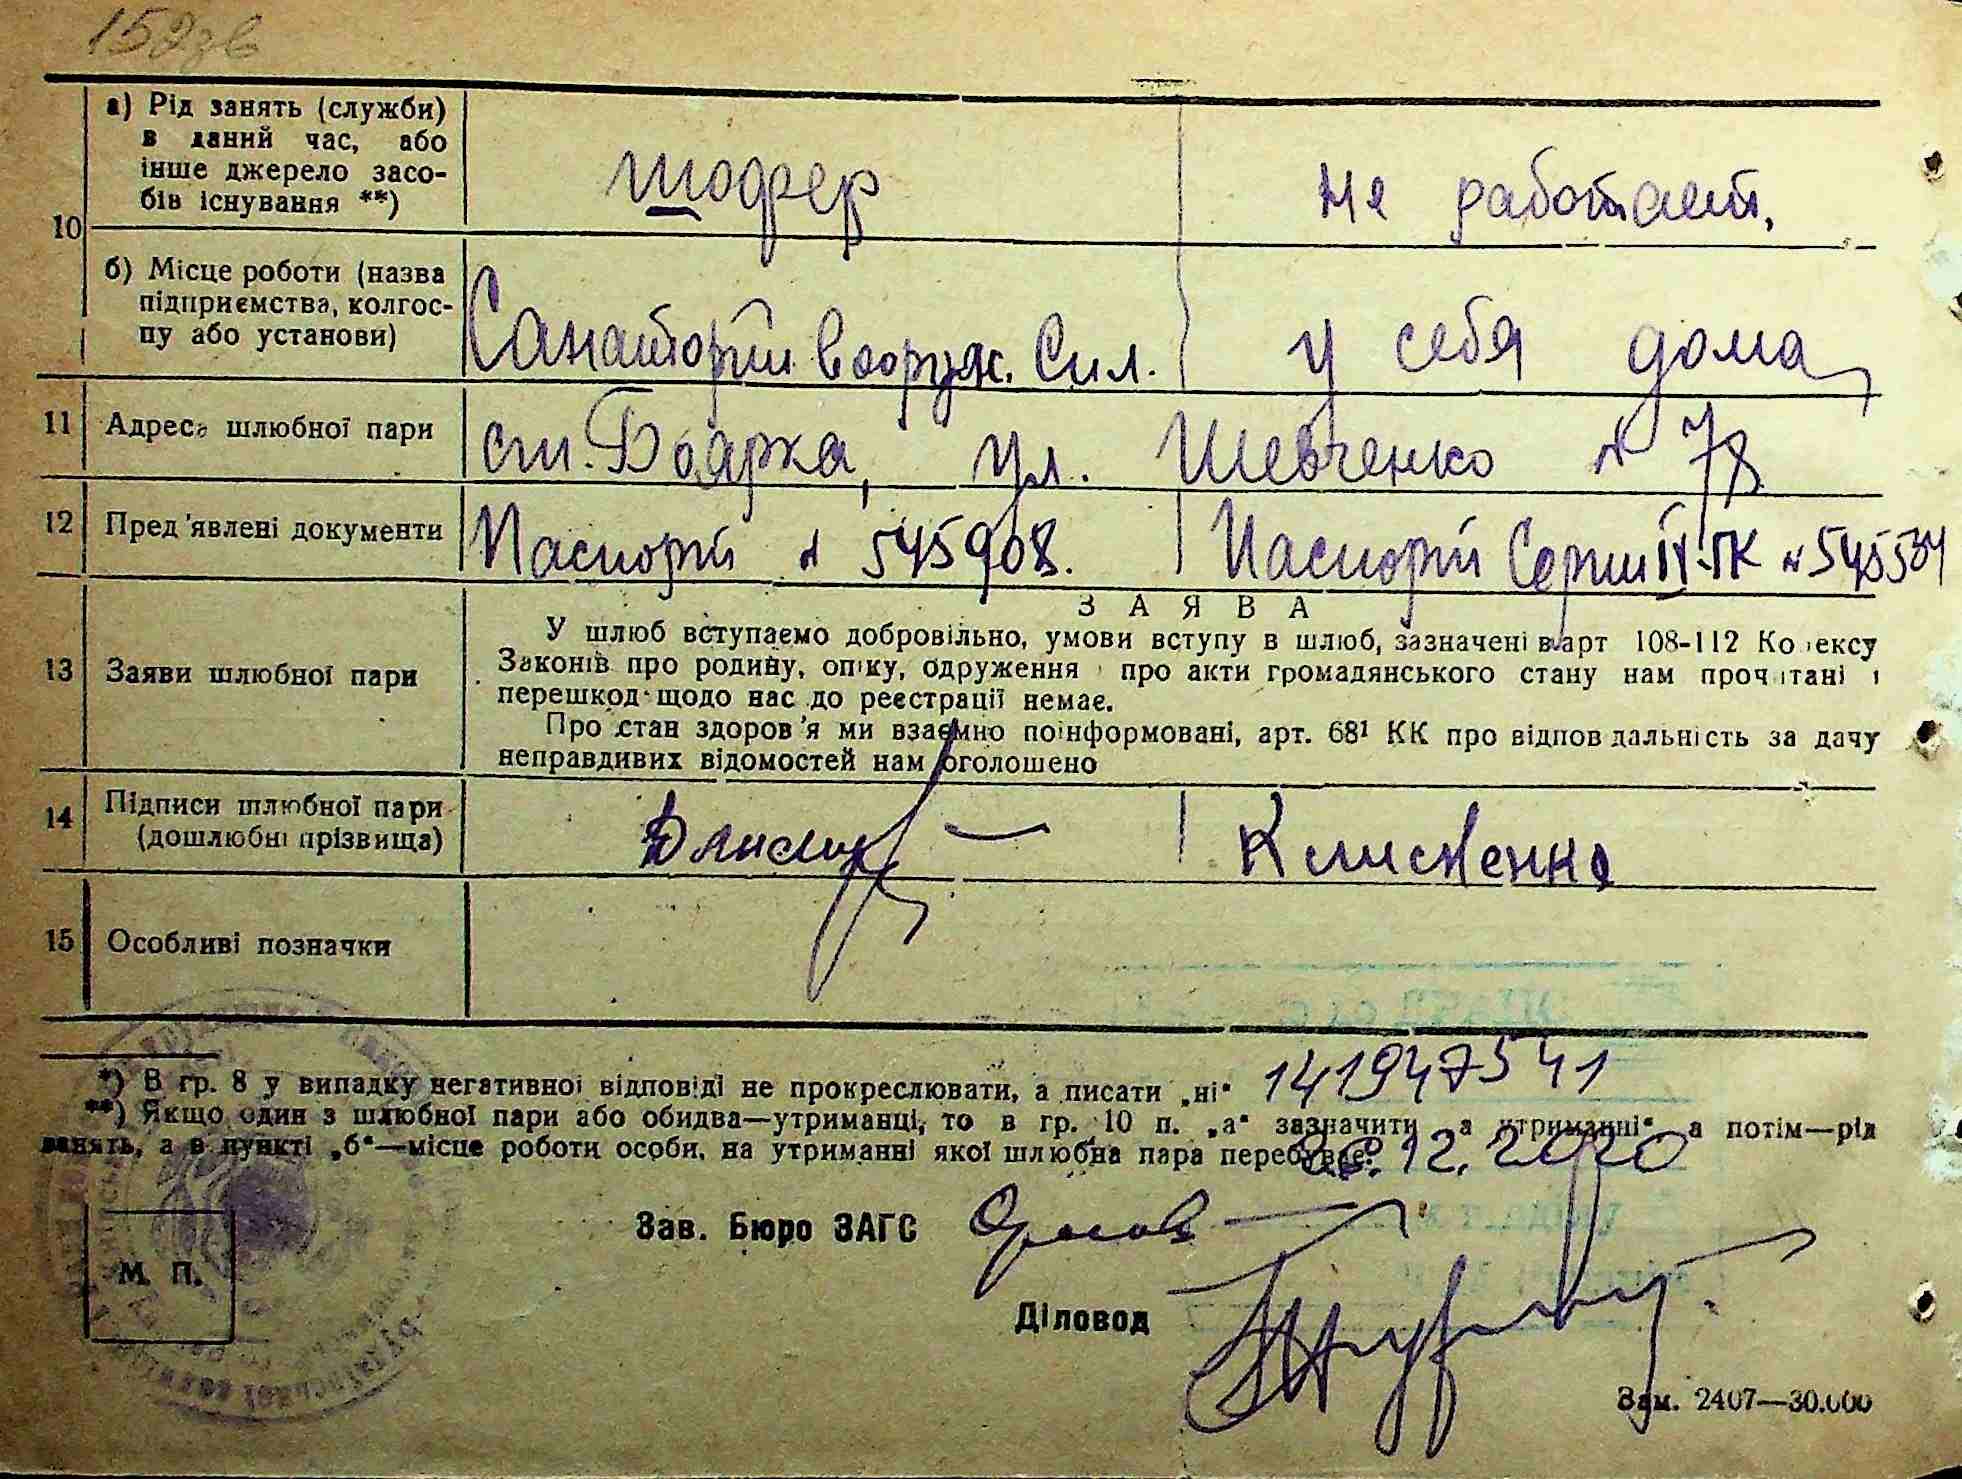 152зв
10
а) Рід занять (служби)
в даний час, або
інше джерело засо-
бів існування **)
шофер
Не работает,
б) Місце роботи (назва
підприємства, колгос-
пу або установи)
Санаторій Вооруж. Сил.
у себя дома,
11 Адреса шлюбної пари
ст. Боярка, ул. Шевченко № 78
12 Пред'явлені документи
Паспорт № 545908.
Паспорт Серии IV-ПК № 545534
13 Заяви шлюбної пари
ЗАЯВА
У шлюб вступаємо добровільно, умови вступу в шлюб, зазначені в арт 108-112 Кодексу
Законів про родину, опіку, одруження і про акти громадянського стану нам прочитані і
перешкод щодо нас до реєстрації немає.
Про стан здоров'я ми взаємно поінформовані, арт. 68¹ КК про відповідальність за дачу
неправдивих відомостей нам оголошено
14 Підписи шлюбної пари
(дошлюбні прізвища)
Клименко
15 Особливі позначки
*) В гр. 8 у випадку негативної відповіді не прокреслювати, а писати „ні“
141947541
**) Якщо один з шлюбної пари або обидва—утриманці, то в гр. 10 п. „а“ зазначити „на утриманні“ а потім—рід
занять, а в пункті „б“—місце роботи особи, на утриманні якої шлюбна пара перебуває.
12.2020
Зав. Бюро ЗАГС
Діловод
М. П.
Зам. 2407—30.000